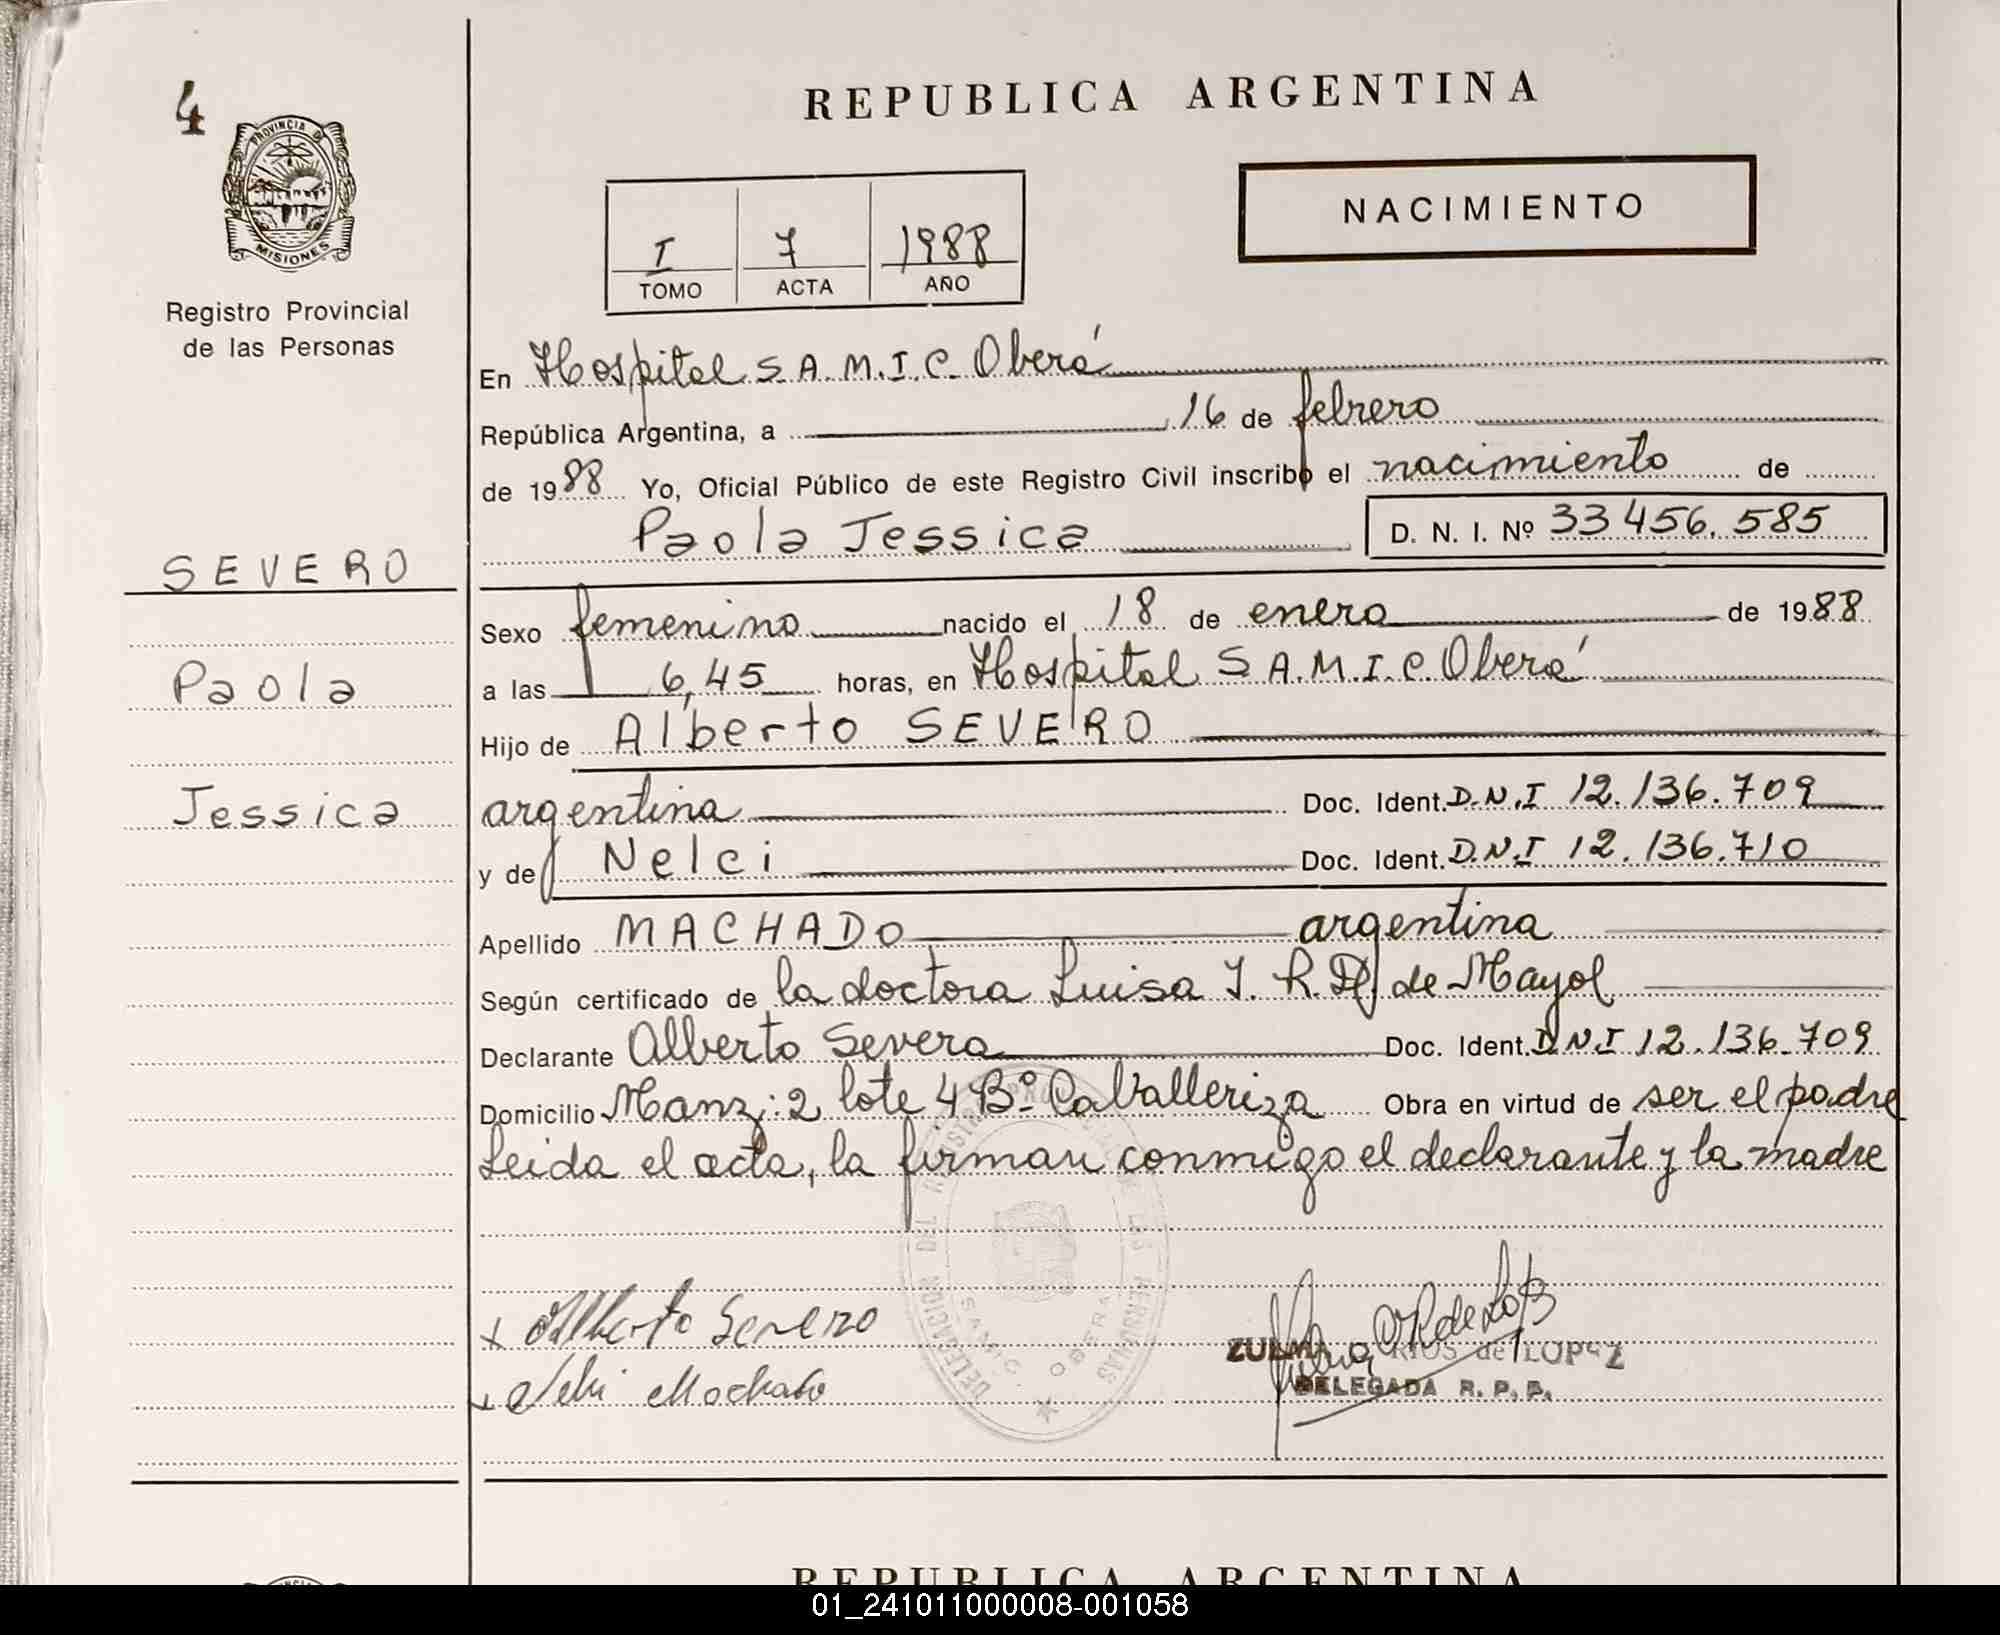 4
PROVINCIA D
MISIONES
Registro Provincial
de las Personas
SEVERO
Paola
Jessica
REPUBLICA ARGENTINA
NACIMIENTO
I 7 1988
TOMO ACTA AÑO
En Hospital S.A.M.I.C. Oberá
República Argentina, a 16 de febrero
de 1988 Yo, Oficial Público de este Registro Civil inscribo el nacimiento de
Paola Jessica D. N. I. Nº 33 456.585
Sexo femenino nacido el 18 de enero de 1988
a las 6,45 horas, en Hospital S.A.M.I.C. Oberá
Hijo de Alberto SEVERO
argentina Doc. Ident. D.N.I 12.136.709
y de Nelci Doc. Ident. D.N.I 12.136.710
Apellido MACHADO argentina
Según certificado de la doctora Luisa J. R. D. de Mayol
Declarante Alberto Severo Doc. Ident. D.N.I 12.136.709
Domicilio Manz: 2 lote 4 Bº Caballeriza Obra en virtud de ser el padre
Leida el acta, la firman conmigo el declarante y la madre
DELEGACION DEL REGISTRO PROVINCIAL DE LAS PERSONAS
SAMIC OBERA
x Alberto Severo
x Nelci Machado
ZULMA RIOS de LOPEZ
DELEGADA R. P. P.
REPUBLICA ARGENTINA
01_241011000008-001058